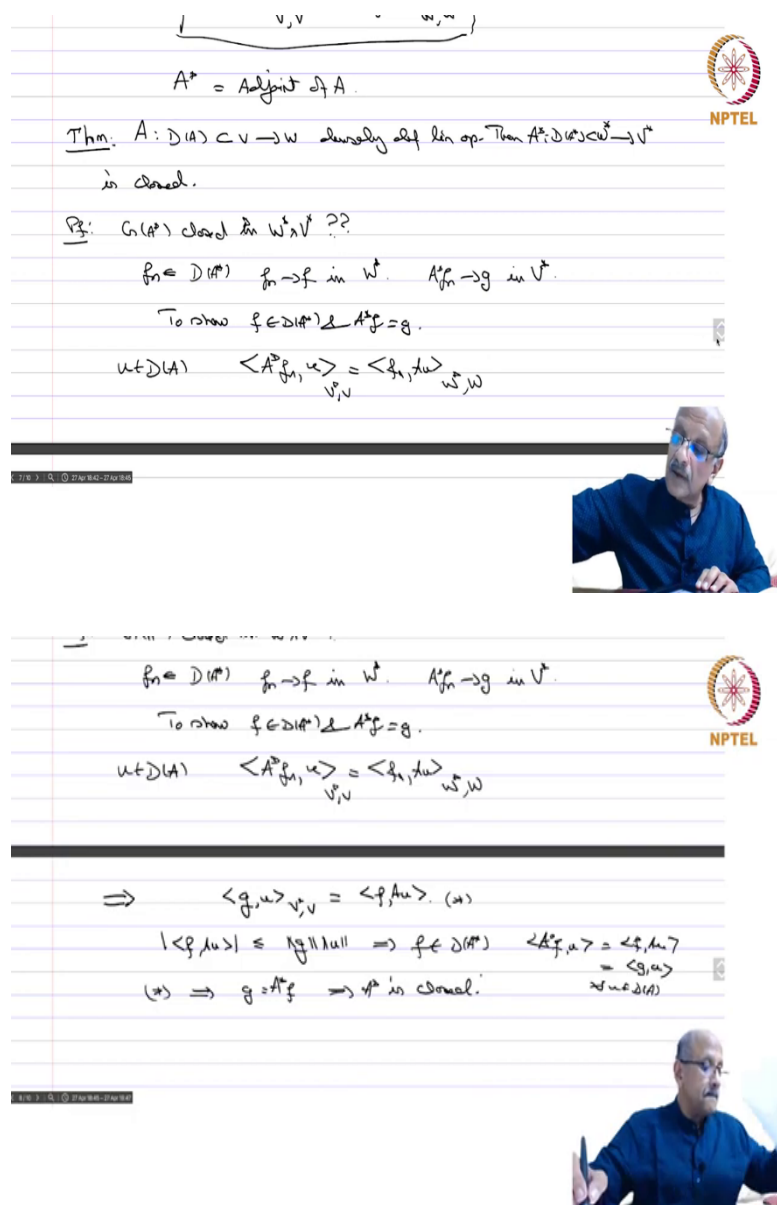 V*,V W*,W
A* = Adjoint of A.
NPTEL
Thm: A: D(A) ⊂ V → W densely def lin op. Then A*: D(A*) ⊂ W* → V*
is closed.
Pf: G(A*) closed in W*×V* ??
fn ∈ D(A*) fn → f in W*. A*fn → g in V*.
To show f ∈ D(A*) & A*f = g.
u ∈ D(A) <A*fn, u>V*,V = <fn, Au>W*,W
7/10 27 Apr 18:42 - 27 Apr 18:45
fn ∈ D(A*) fn → f in W*. A*fn → g in V*.
To show f ∈ D(A*) & A*f = g.
NPTEL
u ∈ D(A) <A*fn, u>V*,V = <fn, Au>W*,W
⇒ <g,u>V*,V = <f,Au>. (*)
|<f,Au>| ≤ ‖g‖‖u‖ ⇒ f ∈ D(A*) <A*f,u> = <f,Au>
= <g,u>
(*) ⇒ g = A*f ⇒ A* is closed. ∀ u ∈ D(A)
8/10 27 Apr 18:45 - 27 Apr 18:47